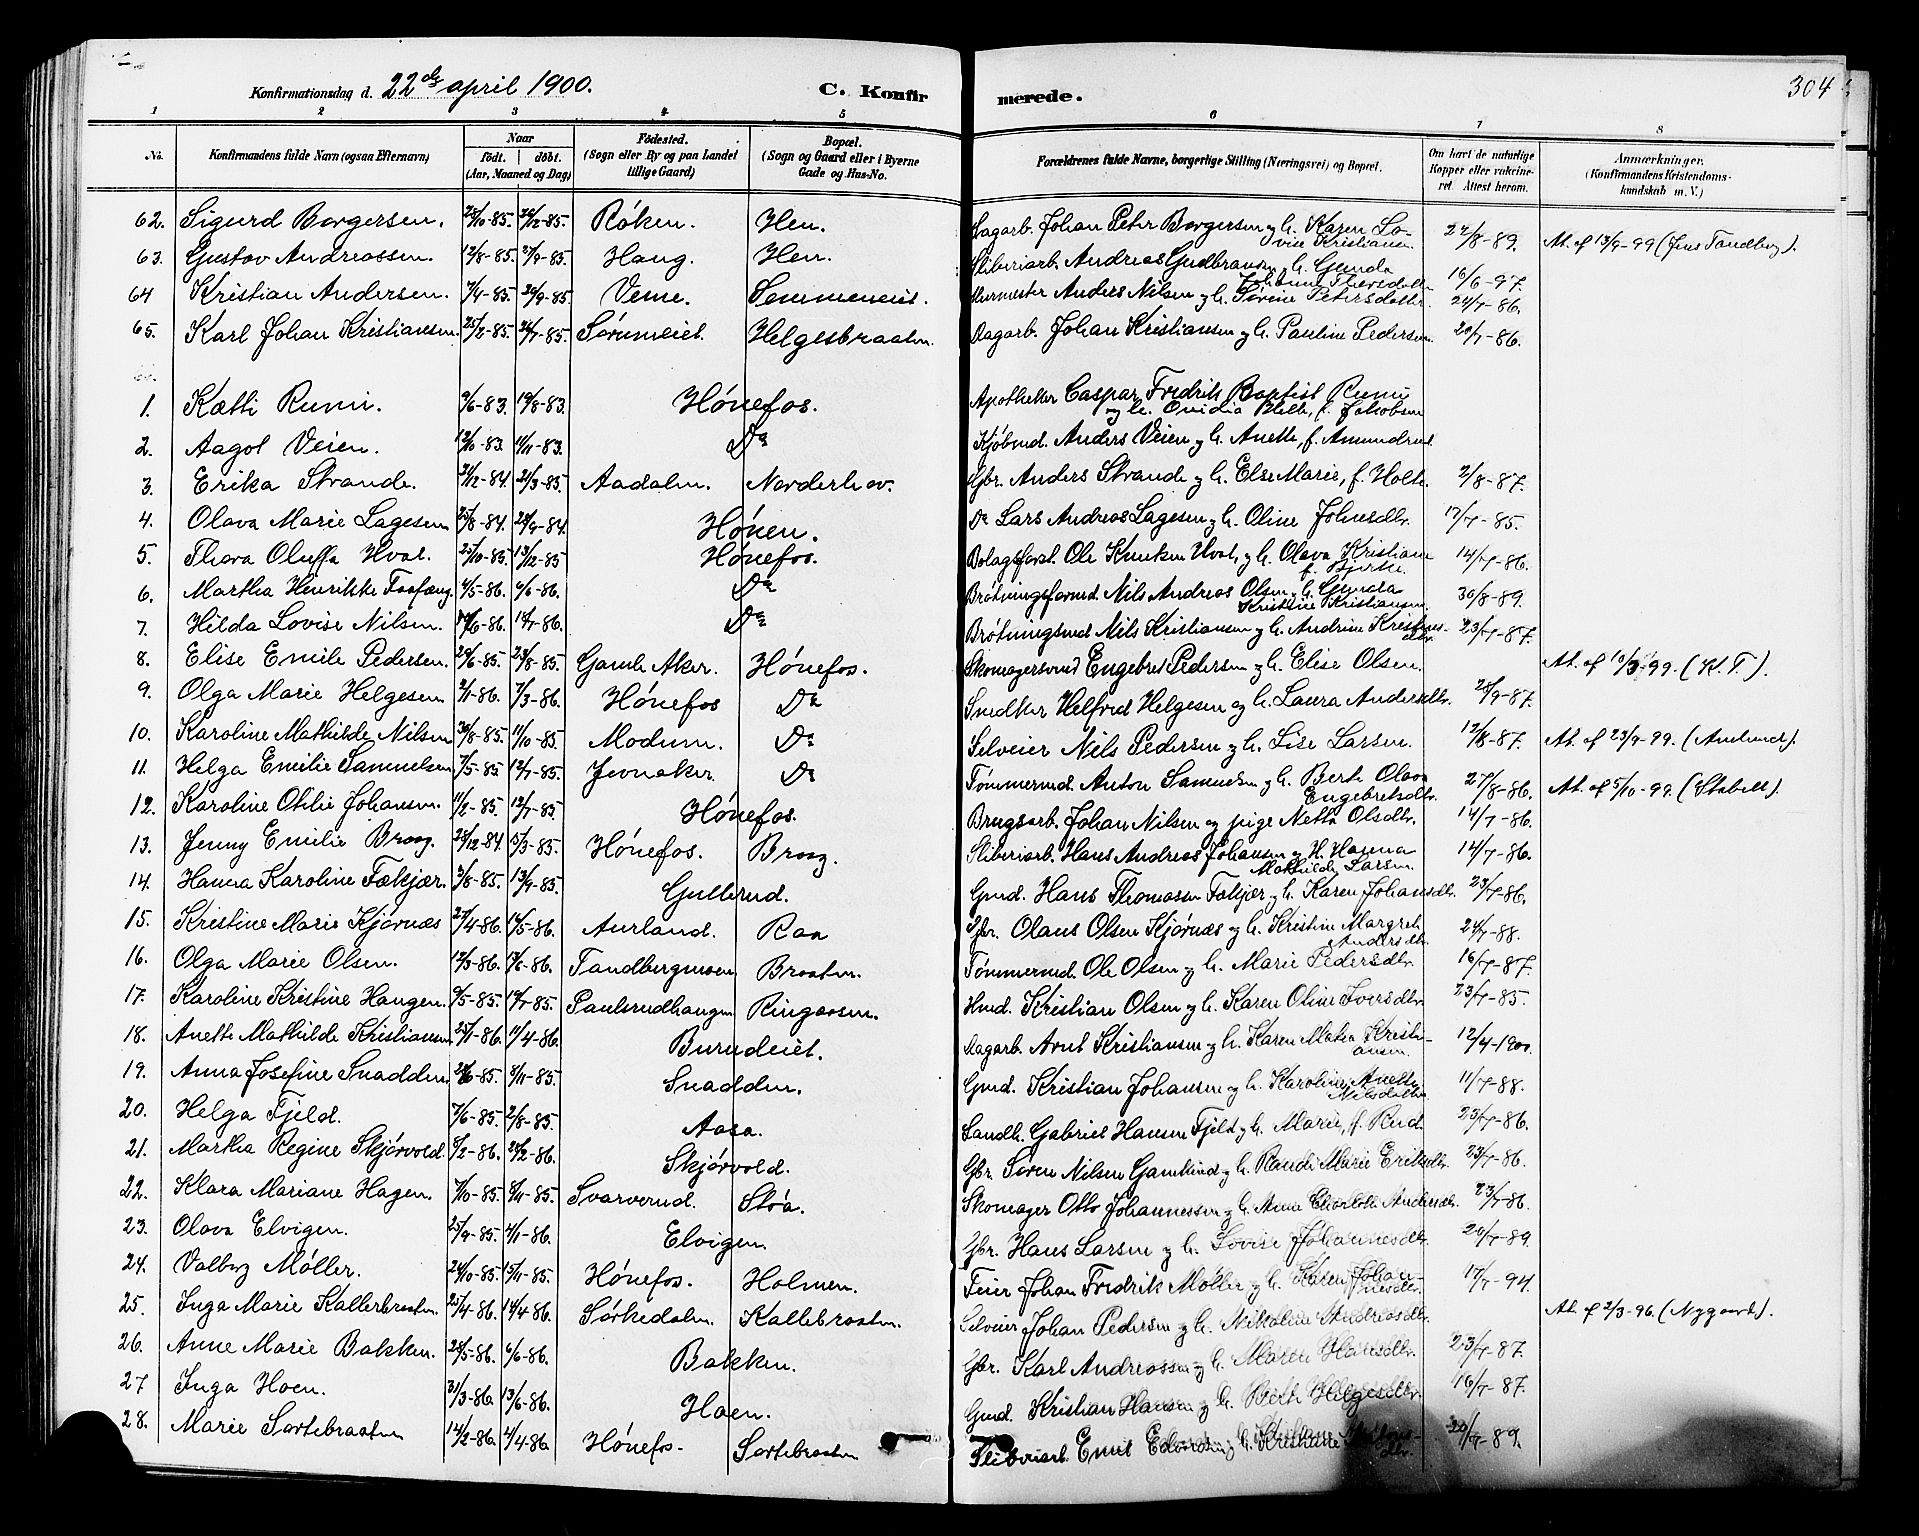 304
Konfirmationsdag d. 22de april 1900.
C. Konfirmerede.
1 2 3 4 5 6 7 8
No. Konfirmandens fulde Navn (ogsaa Efternavn) Naar født. døbt. (Aar, Maaned og Dag) Fødested. (Sogn eller By og paa Landet tillige Gaard) Bopæl. (Sogn og Gaard eller i Byerne Gade og Hus-No. Forældrenes fulde Navne, borgerlige Stilling (Næringsvei) og Bopæl. Om havt de naturlige Kopper eller vakcineret. Attest herom. Anmærkninger. (Konfirmandens Kristendomskundskab m. V.)
62. Sigurd Borgersen. 28/10-85. 26/12-85. Røken. Hen. Dagarb. Johan Peter Borgersen og h. Karen Lovise Kristiansen 24/8-89. At. af 13/9-99 (Jens Tandberg).
63. Gustav Andreassen. 12/8-85. 27/9-85. Haug. Hen. Sliberiarb. Andreas Gudbrandsen og h. Gunda 16/6-97.
64 Kristian Andersen. 7/4-85. 20/9-85. Veme. Semmeneiet. Murmester Anders Nilsen og h. Sørine Petersdatter. 24/7-86.
65. Karl Johan Kristiansen. 25/2-85. 26/7-85. Sørumeiet. Helgesbraaten. Dagarb. Johan Kristiansen og h. Pauline Pedersen. 20/7-86.
1. Kætti Rumi. 9/6-83. 19/8-83. Hønefos. Apotheker Caspar Fredrik Baptist Rumi og h. Ovidia Bleth, f. Jakobsen
2. Aagot Veien. 12/10-83. 11/11-83. Do Kjøbmd. Anders Veien og h. Anette, f. Amundrud
3. Erika Strande. 21/12-84. 21/3-85. Aadalen. Norderhov. Gbr. Anders Strande og h. Else Marie, f. Holte. 2/8-87.
4. Olava Marie Lagesen 25/8-84. 28/9-84. Hønen. Do Lars Andreas Lagesen og h. Oline Johnsdtr. 17/7-85.
5. Thora Oluffa Hval. 25/10-85. 13/12-85 Hønefos. Bolagsforst. Ole Knutsen Hval, og h. Olava Kristiane f. Bjerke. 14/7-86.
6. Martha Henrikke Fosfæng. 4/5-86. 6/6-86. Do Brøtningsformd. Nils Andreas Olsen og h. Gunda Kristine Kristiansen. 30/8-89.
7. Hilda Lovise Nilsen. 14/6-86. 18/7-86. Do Brøtningsmd Nils Kristiansen og h. Andrine Kristensdtr. 23/7-87.
8. Elise Emile Pedersen. 29/6-85. 23/8-85. Gamle Aker. Hønefos. Skomagersvend Engebret Pedersen og h. Elise Olsen. At. af 10/3-99. (K. T).
9. Olga Marie Helgesen 2/11-86. 7/3-86. Hønefos Do Snedker Helfred Helgesen og h. Laura Andersdtr. 28/9-87.
10. Karoline Mathilde Nilsen 30/8-85. 11/10-85. Modum. Do Selveier Nils Pedersen og h. Lise Larsen. 12/8-87. At. af 23/9-99. (Amlund).
11. Helga Emilie Samuelsen 7/5-85 12/7-85. Jevnaker. Do Tømmermd. Anton Samuelsen og h. Berte Olava Engebretsdtr. 27/8-86. At. af 5/10-99. (Stabell).
12. Karoline Otilie Johansen. 11/2-85. 12/7-85. Hønefos. Brugsarb. Johan Nilsen og pige Netta Olsdtr. 14/7-86.
13. Jenny Emilie Braag. 28/12-84. 15/3-85. Hønefos. Braag. Sliberiarb. Hans Andreas Johansen og H. Hanna Mathilde Larsen 14/7-86.
14. Hanna Karoline Fækjær. 3/8-85. 13/9-85. Gullerud. Gmd. Hans Thomassen Fækjær og h. Karen Johansdtr. 23/7-86.
15. Kristine Marie Kjørnæs 27/4-86. 16/5-86. Aurland. Raa Gbr. Olaus Olsen Kjørnæs og h. Kristine Margret Andersdtr. 24/7-88.
16. Olga Marie Olsen. 12/3-86. 13/6-86. Tandbergmoen Braaten. Tømmermd. Ole Olsen og h. Marie Pedersdtr. 16/7-87.
17. Karoline Kristine Haugen. 9/5-85. 19/7-85. Paulsrudhaugen Ringaasen. Hmd. Kristian Olsen og h. Karen Oline Iversdtr. 23/7-85.
18. Anette Mathilde Kristiansen 25/1-86. 11/4-86. Burudeiet. Dagarb. Arnt Kristiansen og h. Karen Mathea Kristiansen. 12/4-1900.
19. Anna Josefine Snadden. 28/6-85. 1/11-85. Snadden. Gmd. Kristian Johansen og h. Karoline Anette Nilsdatter. 11/7-88.
20. Helga Fjeld. 7/6-85. 2/8-85. Aasa. Landh. Gabriel Hansen Fjeld og h. Marie, f. Rud. 23/7-86.
21. Martha Regine Skjørvold. 5/2-86. 28/2-86. Skjørvold. Gbr. Søren Nilsen Gamkind og h. Randi Marie Eriksdtr. 23/7-86.
22. Klara Mariane Hagen. 7/10-85. 8/11-85. Svarverud. Støa. Skomager Otto Johannessen og h. Anne Charlotte Andersdtr. 23/7-86.
23. Olava Elvigen. 25/9-85. 4/1-86. Elvigen Gbr. Hans Larsen og h. Lovise Johannesdtr. 20/7-89.
24. Valborg Møller. 24/10-85. 15/11-85. Hønefos. Holmen. Feier Johan Fredrik Møller og h. Karen Johannesdtr. 17/7-94.
25. Inga Marie Kallerbraaten. 25/4-86. 18/4-86. Sørkedalen. Kallebraaten. Selveier Johan Pedersen og h. Nikoline Andreasdtr. At. af 2/3-96. (Nygaard).
26. Anne Marie Bakken. 28/5-86. 6/6-86. Bakken. Gbr. Karl Andreassen og h. Maren Hansdtr. 23/7-87.
27 Inga Hoen. 31/3-86 13/6-86. Hoen. Gmd. Kristian Hansen og h. Berte Helgesdtr. 16/7-87.
28. Marie Sortebraaten 14/2-86. 4/4-86. Hønefos. Sortebraaten Sliberiarb. Emil Edvardsen og h. Kristiane 20/7-89.